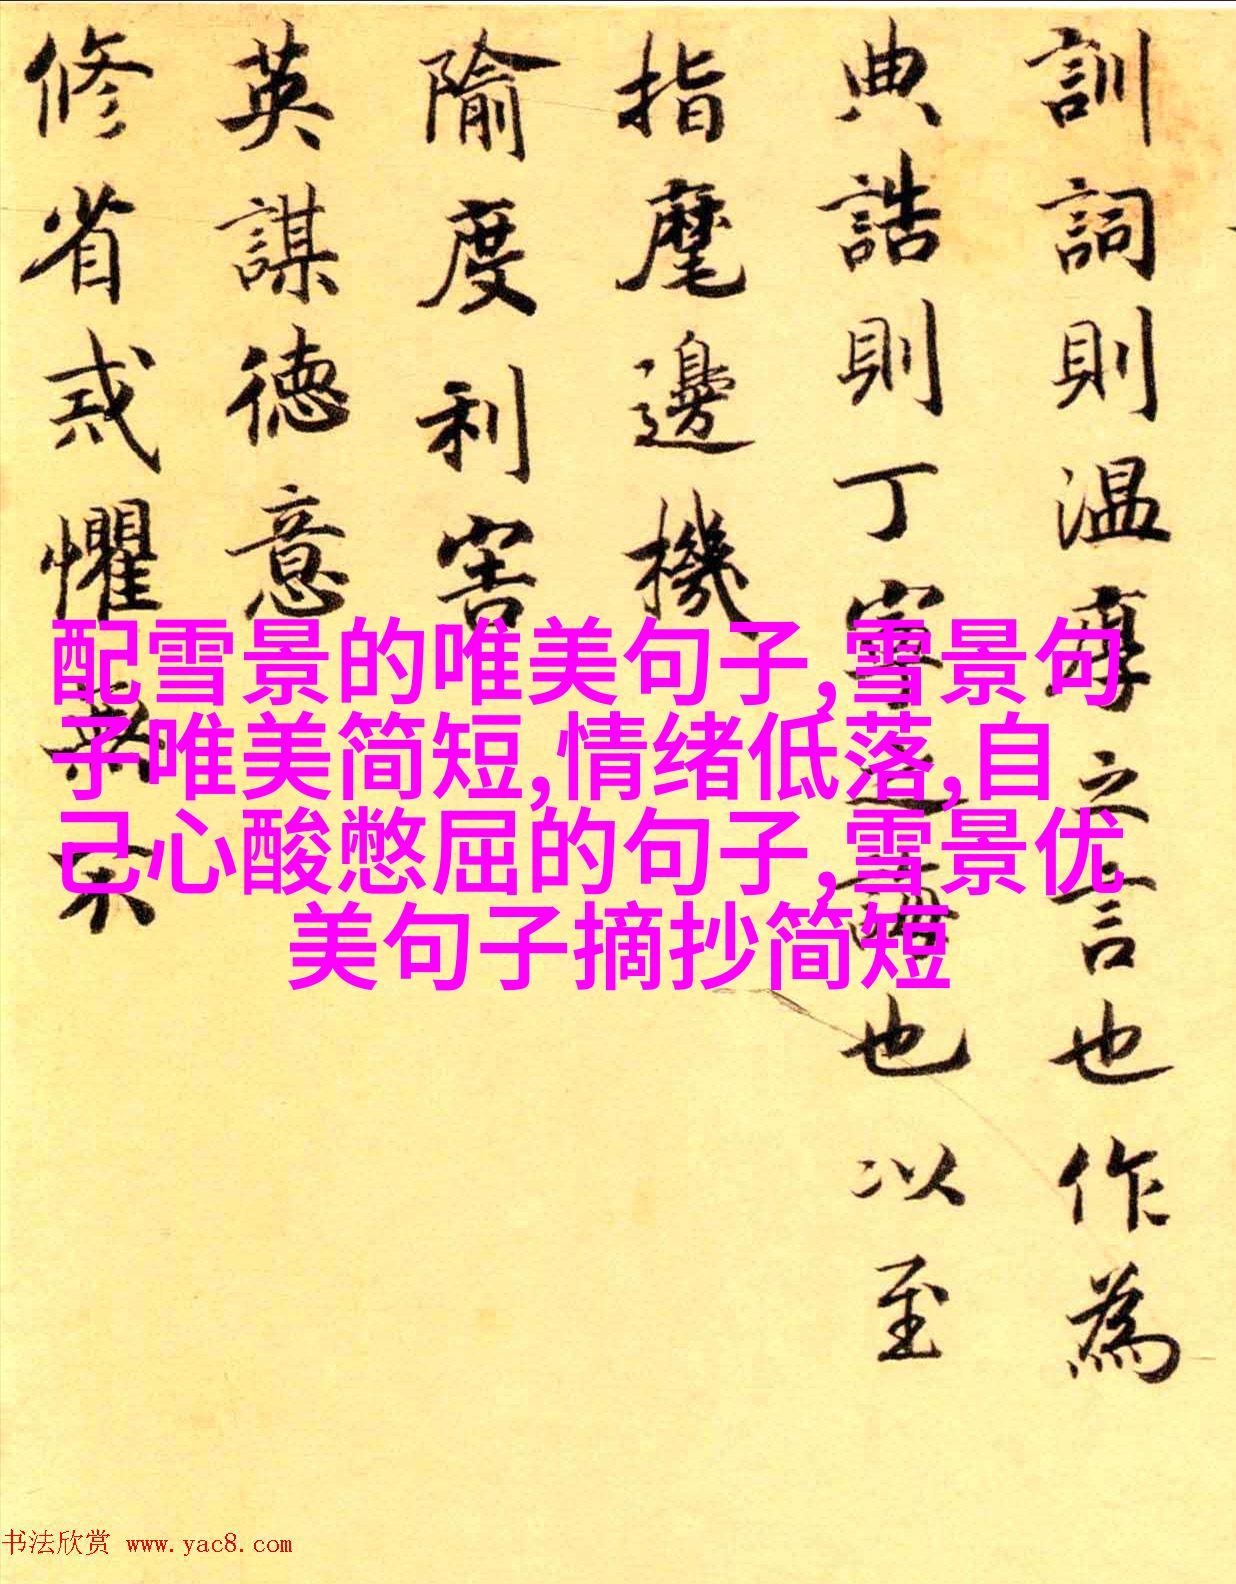 訓詞則温厚之言也作為
典誥則丁寧之語也以至
指麾邊機
隃度利害
英謀德意
修省戒懼無不
配雪景的唯美句子,雪景句
子唯美简短,情绪低落,自
己心酸憋屈的句子,雪景优
美句子摘抄简短
书法欣赏 www.yac8.com